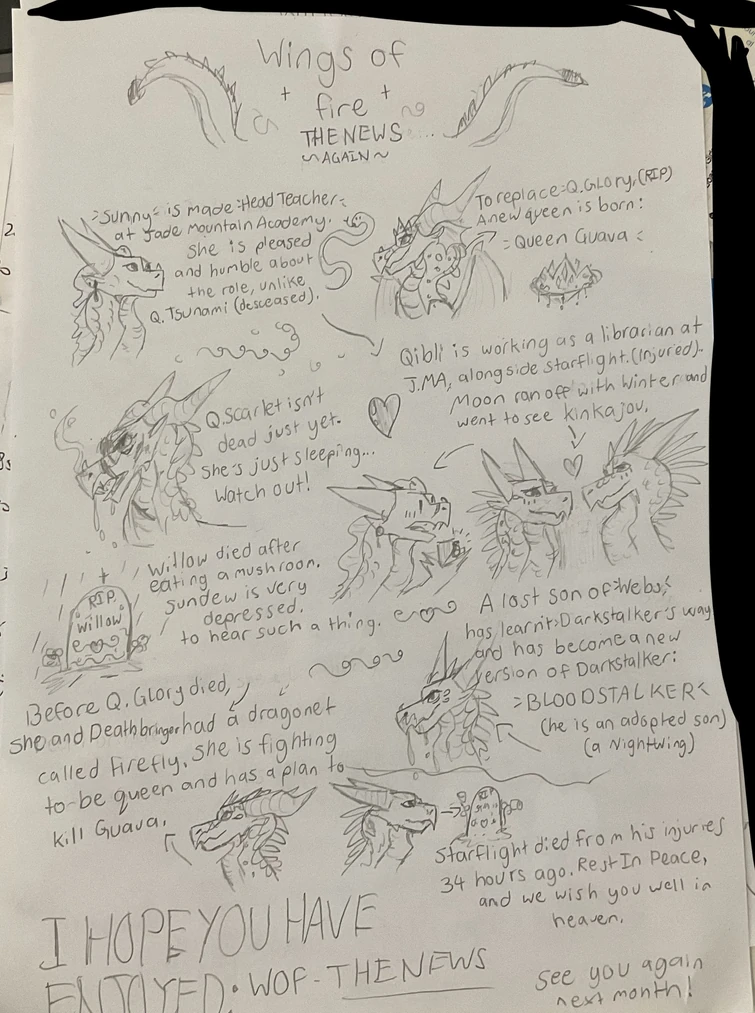 Wings of
fire
THE NEWS
~AGAIN~
Sunny is made Head Teacher
at Jade Mountain Academy.
She is pleased
and humble about
the role, unlike
Q. Tsunami (desceased).
To replace Q. Glory, (RIP)
A new queen is born:
Queen Guava
Qibli is working as a librarian at
J.MA, alongside Starflight. (Injured).
Moon ran off with Winter and
went to see kinkajou.
Q. Scarlet isn't
dead just yet.
She's just sleeping...
Watch out!
Willow died after
eating a mushroom.
Sundew is very
depressed.
to hear such a thing.
RIP.
Willow
A lost son of Webs,
has learnit Darkstalker's way
and has become a new
version of Darkstalker:
>BLOODSTALKER<
(he is an adopted son)
(a Nightwing)
Before Q. Glory died,
She and Deathbringer had a dragonet
called Firefly. She is fighting
to be queen and has a plan to
kill Guava.
RIP
Starflight died from his injuries
34 hours ago. Rest In Peace,
and we wish you well in
heaven.
I HOPE YOU HAVE
ENJOYED: WOF - THE NEWS
See you again
next month!